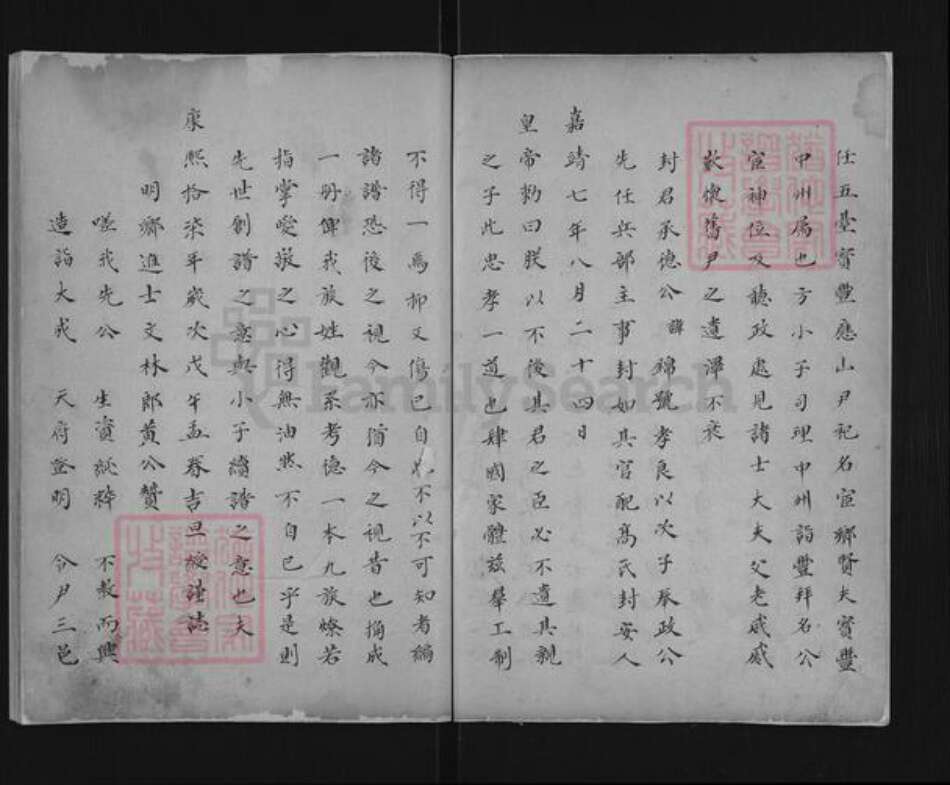 任五臺寶豐應山尹祀名宦鄉賢夫寶豐
中州屬也方小子司理中州詣豐拜名公
宦神位及聽政處見諸士大夫父老咸感
歎懷舊尹之遺澤不衰
封君承德公諱錦號孝良以次子奉政公
先任兵部主事封如其官配高氏封安人
嘉靖七年八月二十四日
皇帝勅曰朕以不後其君之臣必不遺其親
之子此忠孝一道也肆國家體茲舉工制
不得一焉抑又傷已自此不以不可知者編
諸譜恐後之視今亦猶今之視昔也獨成
一冊俾我族姓觀系考德一本九族燎若
指掌愛敬之心得無油然不自已乎是則
先世創譜之意與小子續譜之意也夫
康熙拾柒年歲次戊午孟春吉旦綬謹誌
明鄉進士文林郎黃公贊
嗟我先公 生資純粹 不教而興
造詣大成 天府登明 令尹三邑
FamilySearch